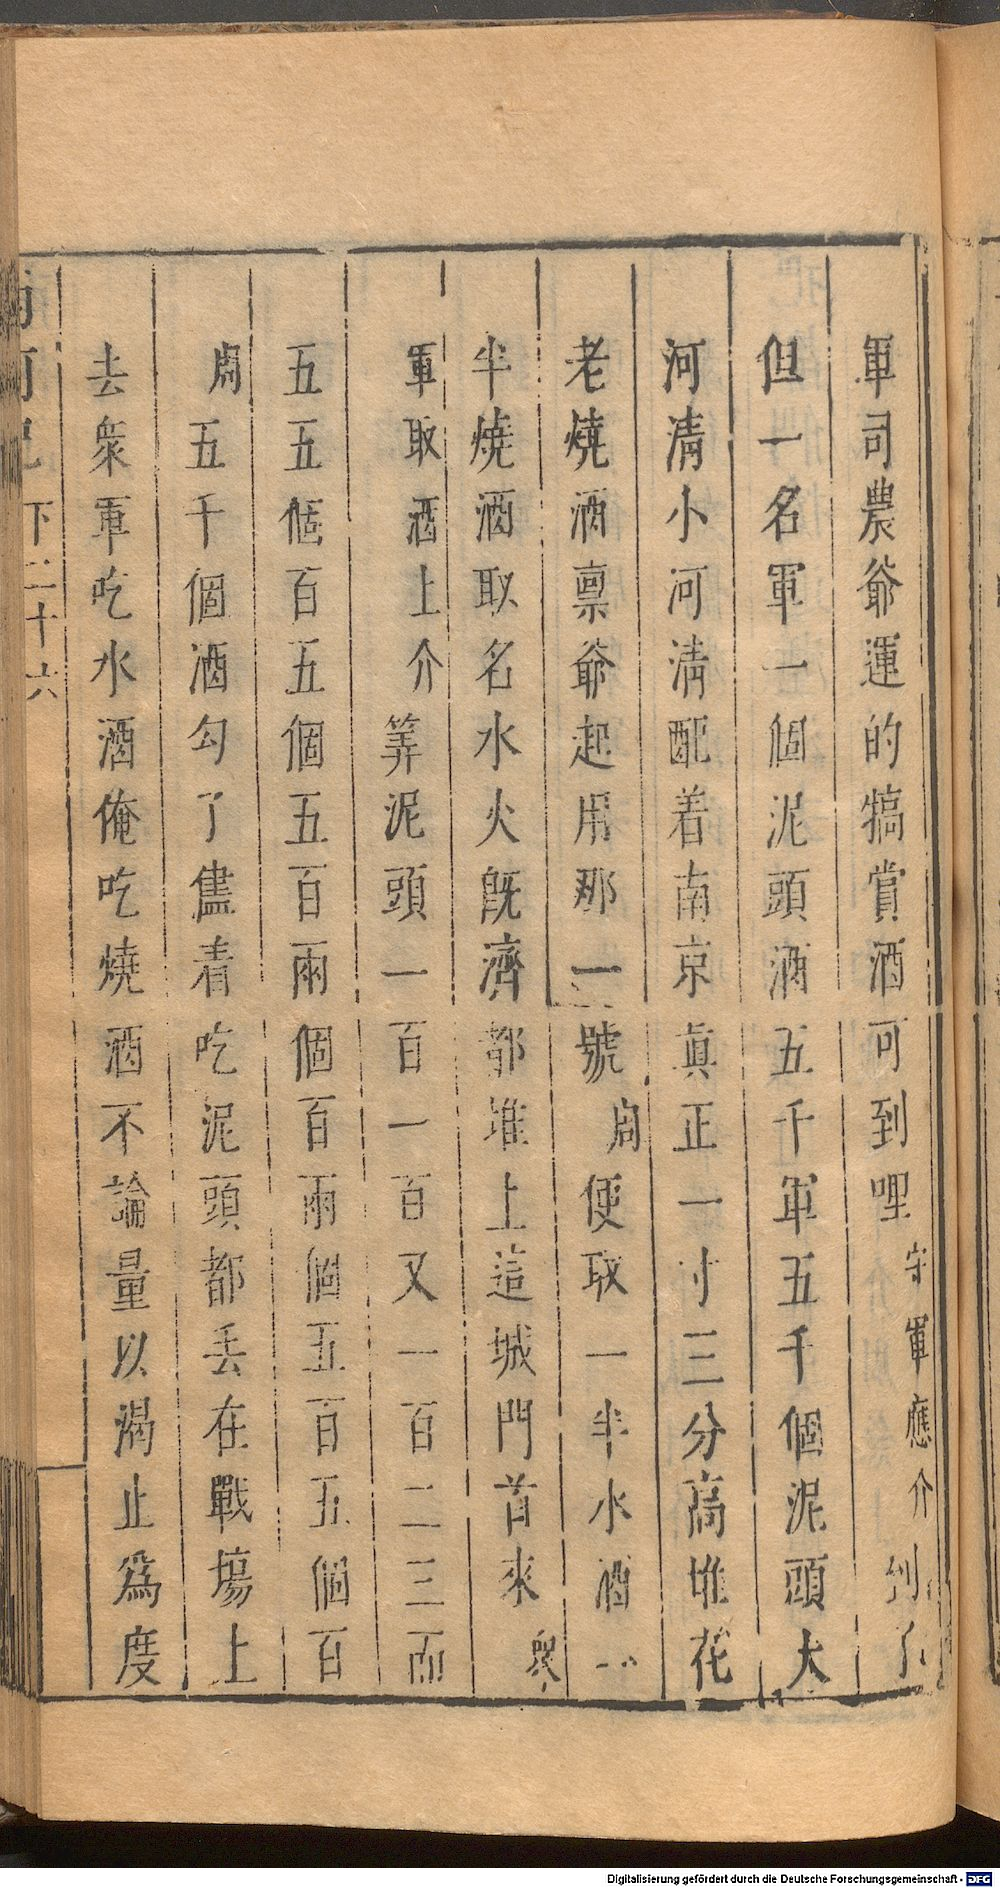 軍司農爺運的犒賞酒可到哩守軍應介到了
但一名軍一個泥頭酒五千軍五千個泥頭大
河清小河清配着南京真正一寸三分高堆花
老燒酒禀爺起用那一號周便取一半水酒一
半燒酒取名水火旣濟都堆上這城門首來衆
軍取酒上介筭泥頭一百一百又一百二三四
五五個百五個五百兩個百兩個五百五個百
周五千個酒勾了儘着吃泥頭都丟在戰塲上
去衆軍吃水酒俺吃燒酒不論量以渴止爲度
下二十六
Digitalisierung gefördert durch die Deutsche Forschungsgemeinschaft - DFG